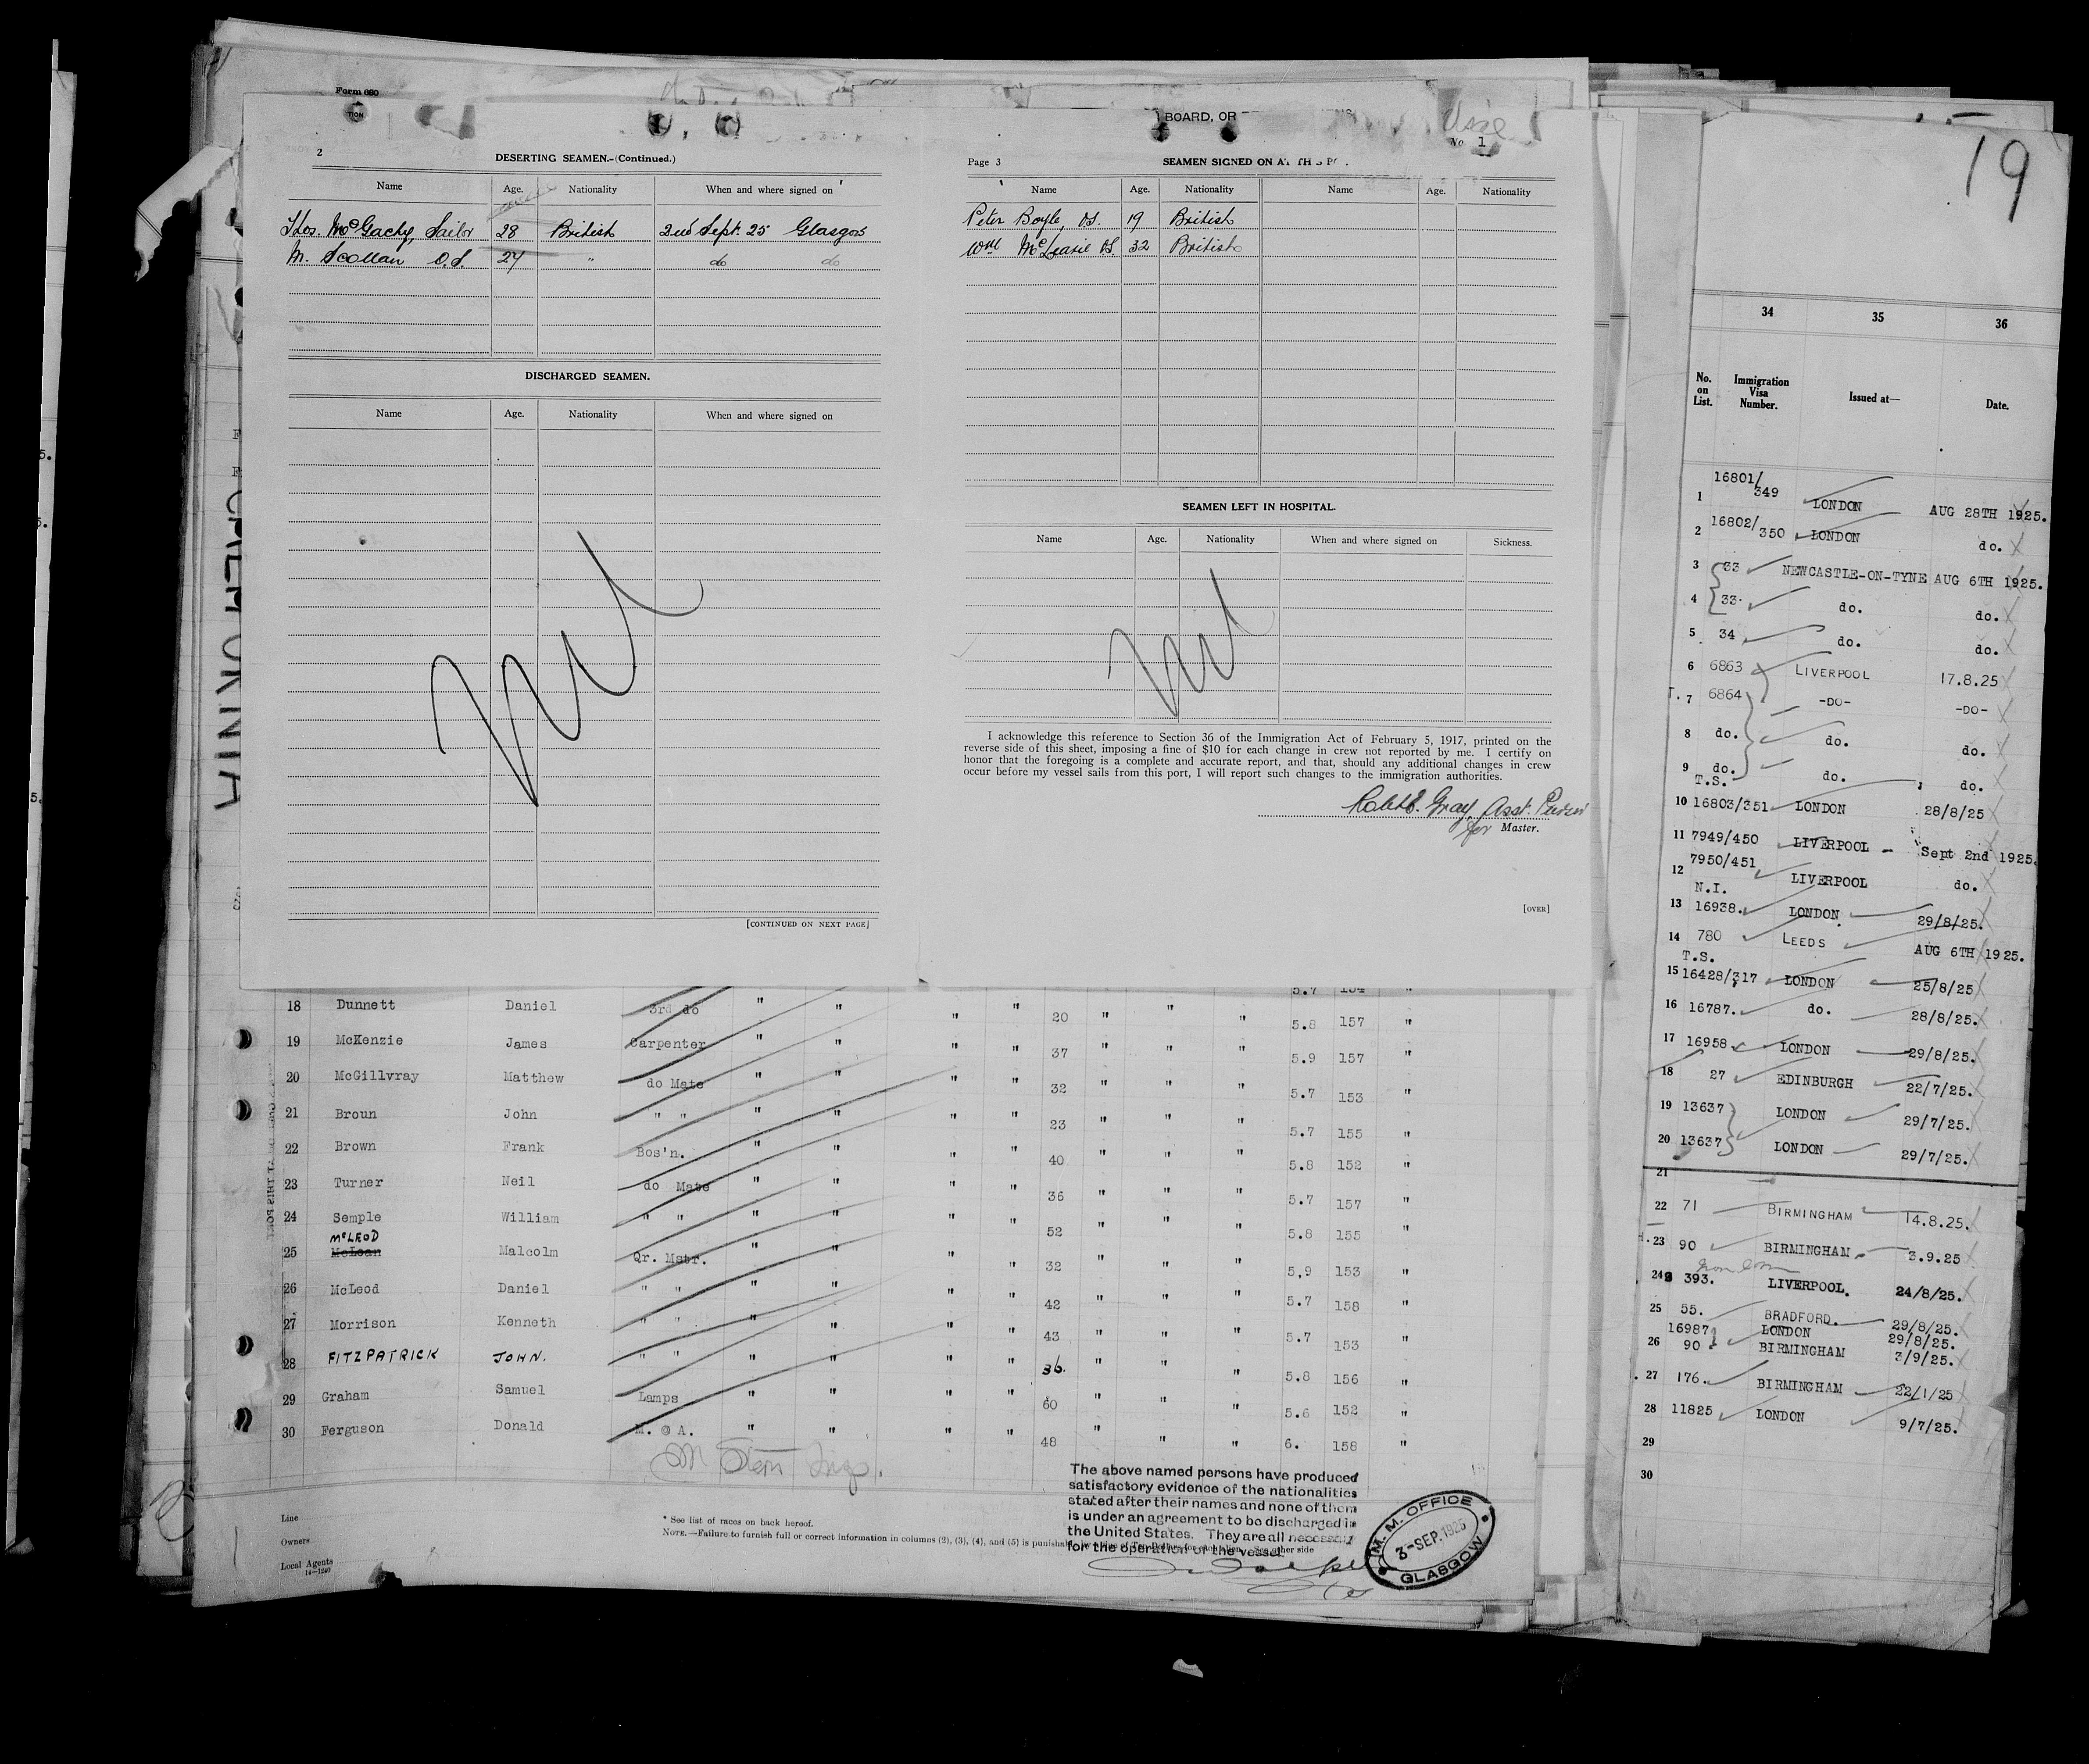 Form 680
TION
2
DESERTING SEAMEN.-(Continued.)
Name Age. Nationality When and where signed on
Thos. McGachy, Sailor 28 British 2nd Sept. 25 Glasgow
M. Scollan O.S. 27 " do do
DISCHARGED SEAMEN.
Name Age. Nationality When and where signed on
Nil
[CONTINUED ON NEXT PAGE]
BOARD, OR
No. 1
Page 3 SEAMEN SIGNED ON AT
Name Age. Nationality Name Age. Nationality
Peter Boyle, O.S. 19 British
Wm McLearie O.S. 32 British
SEAMEN LEFT IN HOSPITAL.
Name Age. Nationality When and where signed on Sickness.
Nil
I acknowledge this reference to Section 36 of the Immigration Act of February 5, 1917, printed on the
reverse side of this sheet, imposing a fine of $10 for each change in crew not reported by me. I certify on
honor that the foregoing is a complete and accurate report, and that, should any additional changes in crew
occur before my vessel sails from this port, I will report such changes to the immigration authorities.
Gray, Asst. Purser
for Master.
[OVER]
5.7 154 "
18 Dunnett Daniel 3rd do " " " " 20 " " " 5.8 157 "
19 McKenzie James Carpenter " " " " 37 " " " 5.9 157 "
20 McGillvray Matthew do Mate " " " " 32 " " " 5.7 153 "
21 Broun John " " " " " " 23 " " " 5.7 155 "
22 Brown Frank Bos'n. " " " " 40 " " " 5.8 152 "
23 Turner Neil do Mate " " " " 36 " " " 5.7 157 "
24 Semple William " " " " " " 52 " " " 5.8 155 "
McLEOD
25 McLean Malcolm Qr. Mstr. " " " " 32 " " " 5,9 153 "
26 McLeod Daniel " " " " " " 42 " " " 5.7 158 "
27 Morrison Kenneth " " " " " " 43 " " " 5.7 153 "
28 FITZPATRICK JOHN. " " " " " " 36. " " " 5.8 156 "
29 Graham Samuel Lamps " " " " 60 " " " 5.6 152 "
30 Ferguson Donald M. @ A. " " " " 48 " " " 6. 158 "
Line
Owners
Local Agents
14—1240
* See list of races on back hereof.
NOTE.—Failure to furnish full or correct information in columns (2), (3), (4), and (5) is punishable by a fine of Ten Dollars for each alien. See other side
The above named persons have produced
satisfactory evidence of the nationalities
stated after their names and none of them
is under an agreement to be discharged in
the United States. They are all necessary
for the operation of the vessel.
M. M. OFFICE
3-SEP.1925
GLASGOW
19
34 35 36
No. on List. Immigration Visa Number. Issued at— Date.
1 16801/349 LONDON AUG 28TH 1925.
2 16802/350 LONDON do.
3 33 NEWCASTLE-ON-TYNE AUG 6TH 1925.
4 33. do. do.
5 34 do. do.
6 6863 LIVERPOOL 17.8.25
T. 7 6864 -DO- -DO-
8 do. do. do.
9 do. do. do.
T.S.
10 16803/351 LONDON 28/8/25
11 7949/450 LIVERPOOL - Sept 2nd 1925.
12 7950/451 LIVERPOOL do.
N.I.
13 16938. LONDON 29/8/25.
14 780 LEEDS AUG 6TH 1925.
T.S.
15 16428/317 LONDON 25/8/25
16 16787. do. 28/8/25.
17 16958 LONDON 29/8/25.
18 27 EDINBURGH 22/7/25.
19 13637 LONDON 29/7/25.
20 13637 LONDON 29/7/25.
21
22 71 BIRMINGHAM 14.8.25.
23 90 BIRMINGHAM 3.9.25
24 393. LIVERPOOL. 24/8/25.
25 55. BRADFORD. 29/8/25.
16987 LONDON 29/8/25.
26 90 BIRMINGHAM 3/9/25.
27 176. BIRMINGHAM 22/1/25
28 11825 LONDON 9/7/25.
29
30